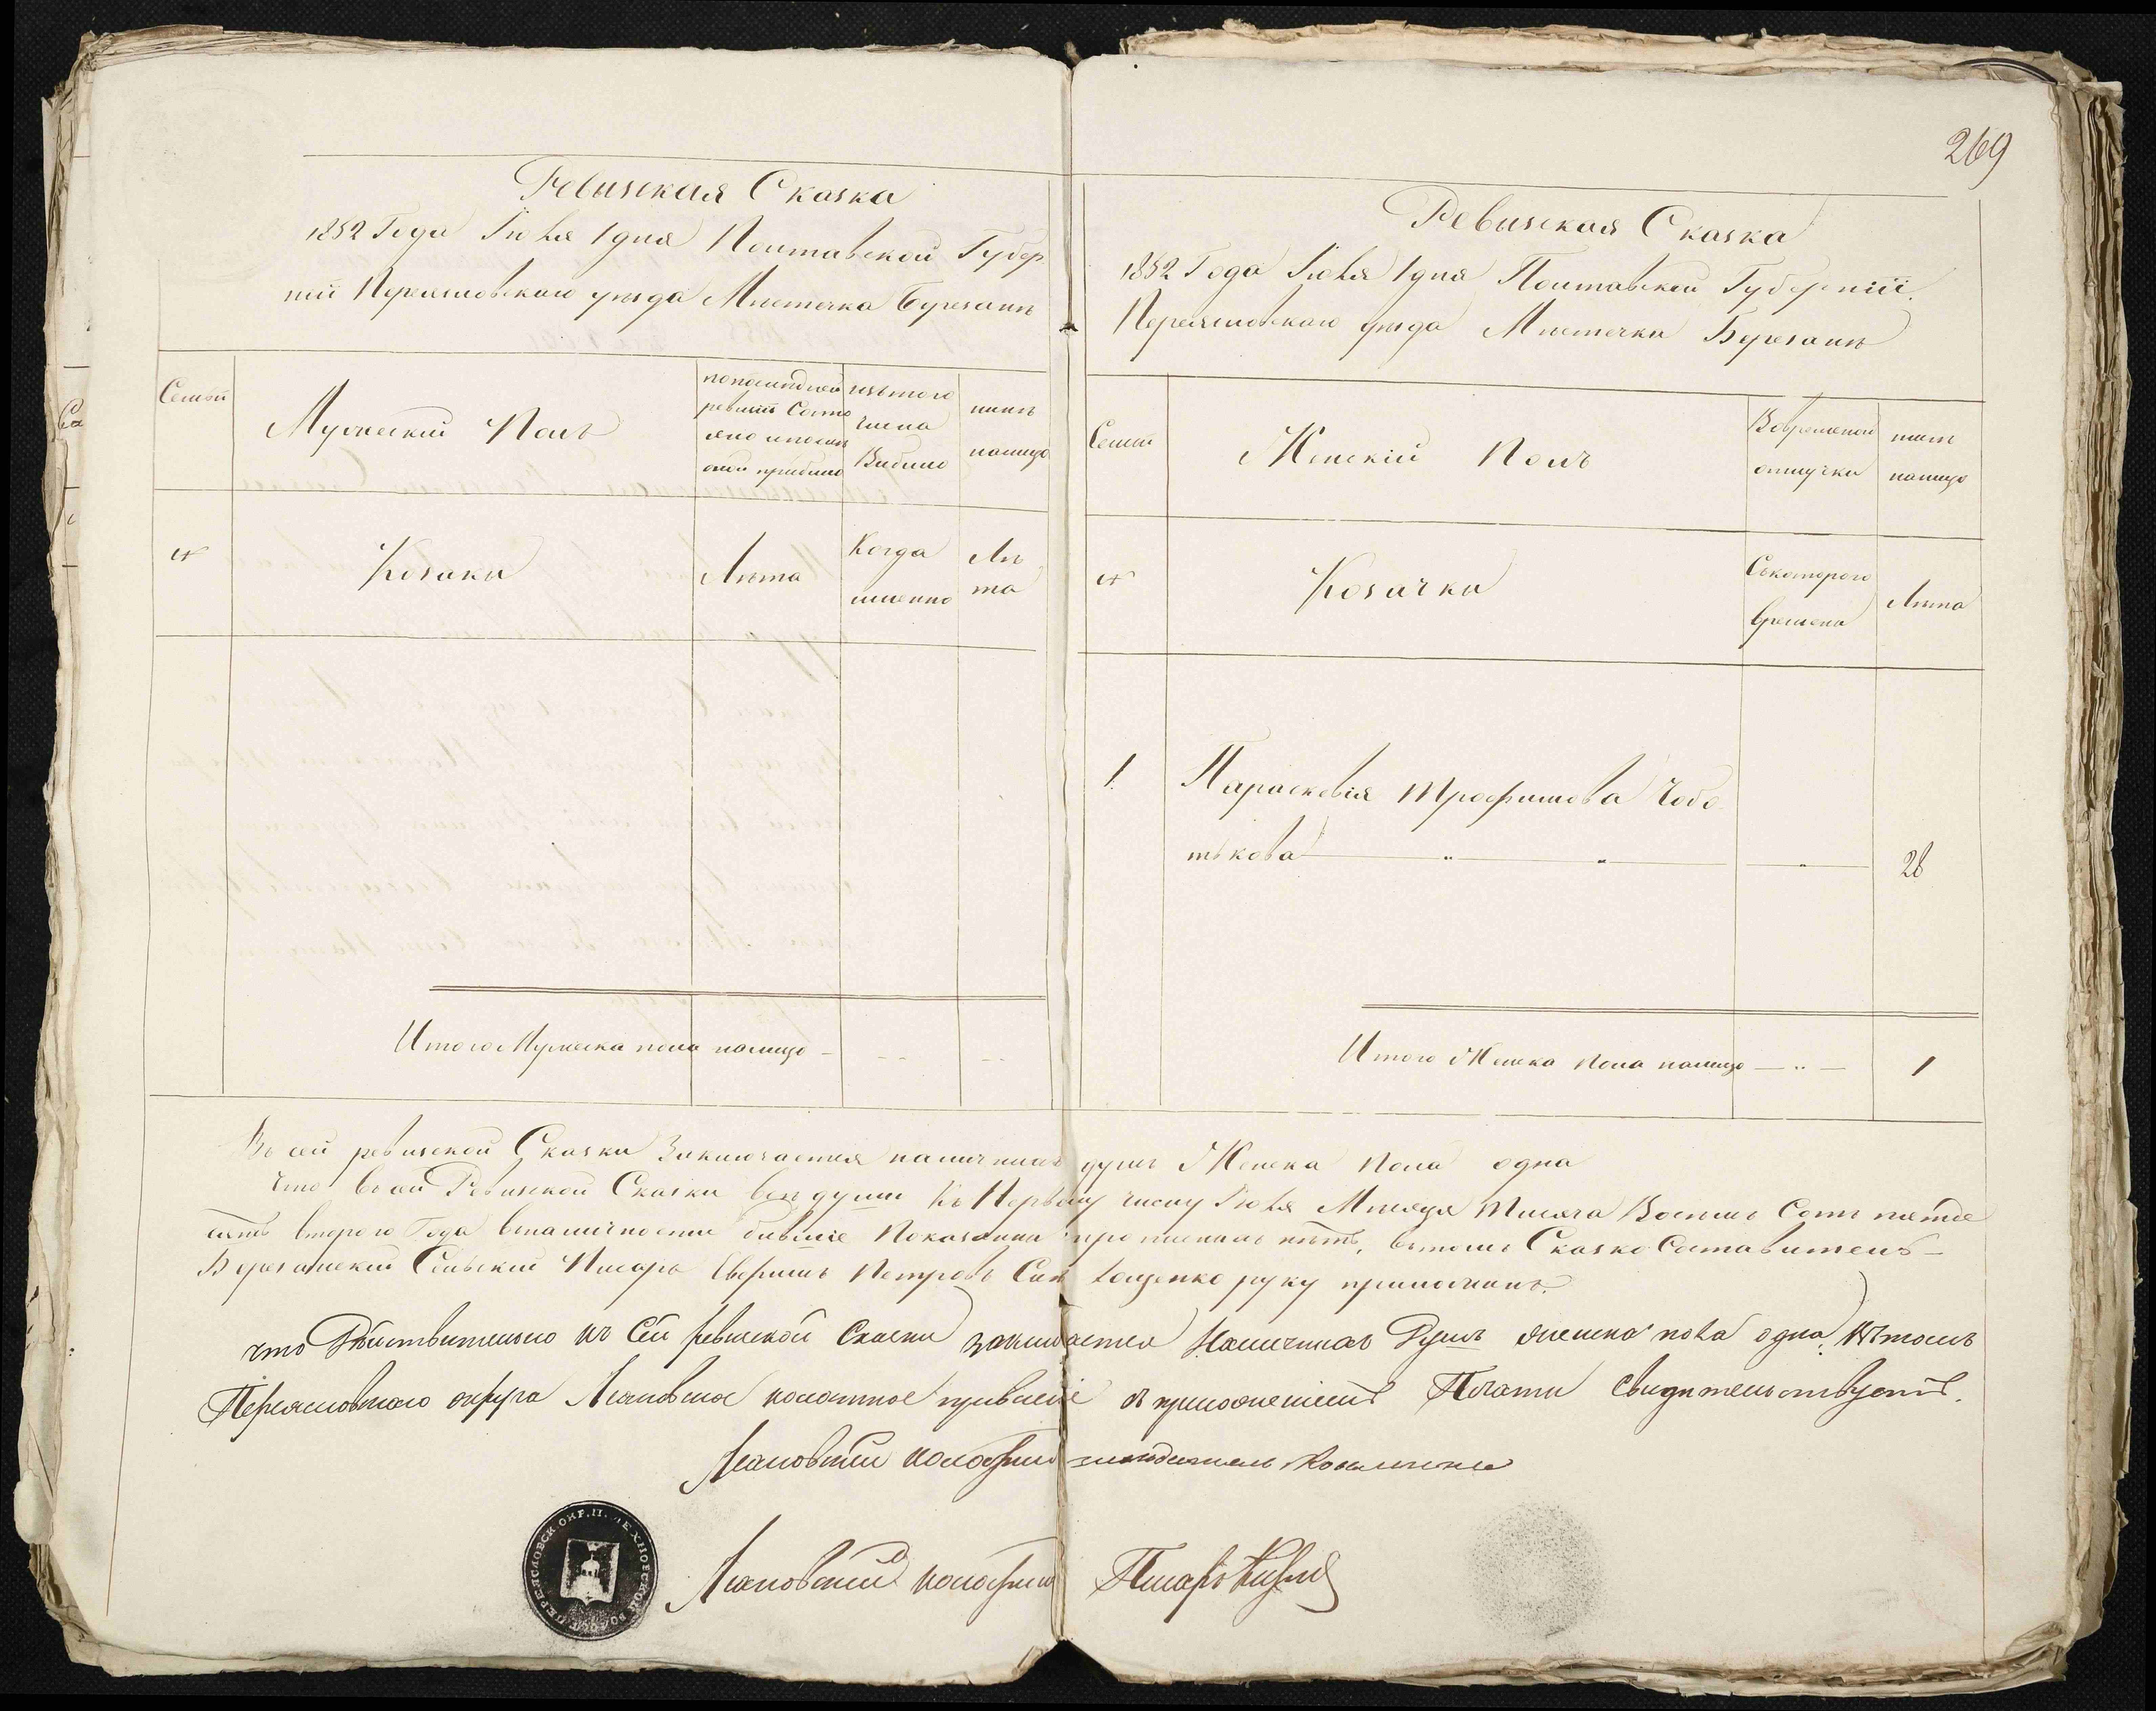 269
Ревизская Сказка
1852 Года Июля 1 дня Полтавской Губер
нии Переясловскаго уезда Местечка Березани
Семьи
Мужеский Полъ
по последней
ревизии Состо
яло и после
оной прибыло
изъ того
числа
Выбыло
ныне
налицо
№
Козаки
Лета
Когда
именно
Ле
та
Итого Мужеска пола налицо - - -
Ревизская Сказка
1852 Года Июля 1 дня Полтавской Губерніи
Переясловскаго уезда Местечка Березани
Семьи
Женскій Полъ
Во временной
отлучки
ныне
налицо
№
Козачки
Съ котораго
времени
Лета
1.
Парасковія Трофимова Чобо
тькова — „ — „ — — „ — 28
Итого Женска пола налицо — „ — 1
Въ сей ревизской Сказки Заключается наличныхъ душъ Женска пола одна
Что въ сей Ревизской Сказки все души Къ Первому числу Июля Месяца Тысяча Восемь Сотъ пятде
сятъ второго Года въ наличности бывшіе Показанны и прописныхъ нетъ, въ томъ Сказко Составитель
Березанский Сельский Писарь Петровъ Сынъ руку приложилъ.
что Действительно въ Сей ревизской Сказки заключается Наличныхъ Душъ женска пола одна, въ томъ
Переясловскаго округа волостное правление съ приложениемъ Печати свидетельствуетъ.
волостный
волостный Писарь